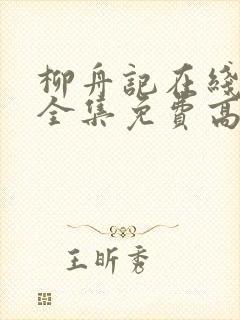 柳舟記在綫
全集免費高
王昕秀